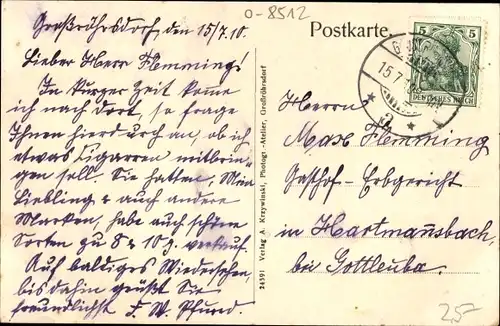 o-8512
Großröhrsdorf, den 15/7.10.
Lieber Herr Flemming.
In kurzer Zeit komme
ich nach dort, so frage
Ihnen hierdurch an, ob ich
etwas Zigarren mitbrin-
gen soll. Sie hatten, Mein
Liebling & auch andere
Marken, habe auch schöne
Sorten zu 8 & 10 ₰ verkauf.
Auf baldiges Wiedersehen,
bis dahin grüßt Sie
freundlichst F. W.
24591 Verlag A. Krzywinski, Photogr.-Atelier, Großröhrsdorf
Postkarte.
5 5
DEUTSCHES REICH
15.7.
Herrn
Max Flemming
Gasthof-Erbgericht
in Hartmannsbach
bei Gottleuba.
257